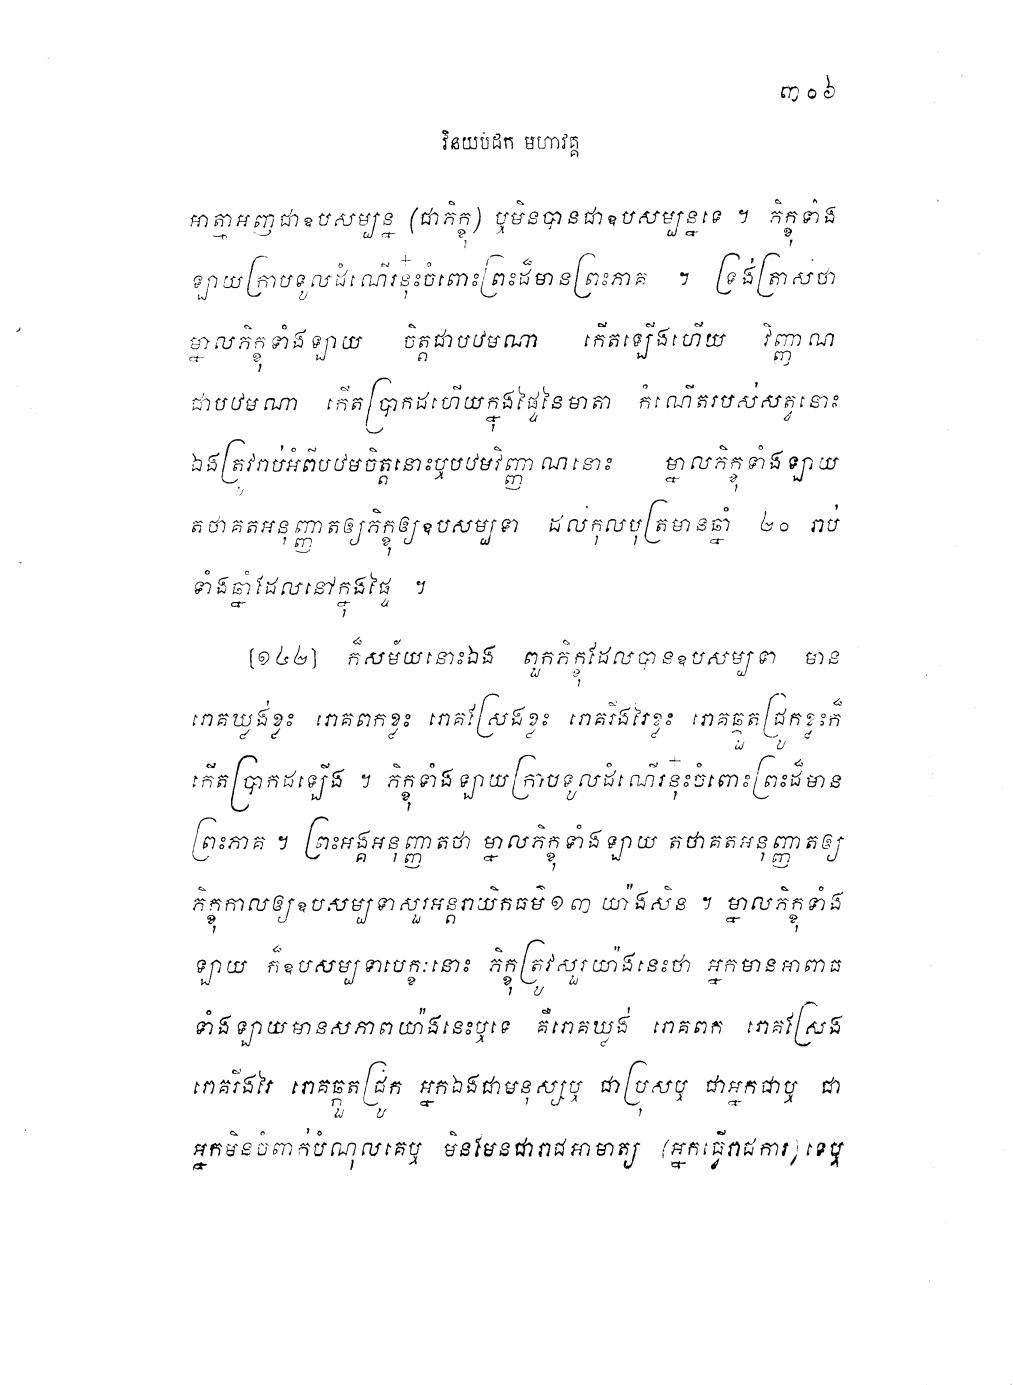 ៣០៦
វិនយបិដក មហាវគ្គ
អាត្មាអញជាឧបសម្បន្ន (ជាភិក្ខុ) ឬមិនបានជាឧបសម្បន្នទេ ។ ភិក្ខុទាំង
ឡាយក្រាបទូលដំណើរនុ៎ះចំពោះព្រះដ៏មានព្រះភាគ ។ ទ្រង់ត្រាស់ថា
ម្នាលភិក្ខុទាំងឡាយ ចិត្តជាបឋមណា កើតឡើងហើយ វិញ្ញាណ
ជាបឋមណា កើតប្រាកដហើយក្នុងផ្ទៃនៃមាតា កំណើតរបស់សត្វនោះ
ឯងត្រូវរាប់អំពីបឋមចិត្តនោះឬបឋមវិញ្ញាណនោះ ម្នាលភិក្ខុទាំងឡាយ
តថាគតអនុញ្ញាតឲ្យភិក្ខុឲ្យឧបសម្បទា ដល់កុលបុត្រមានឆ្នាំ ២០ រាប់
ទាំងឆ្នាំដែលនៅក្នុងផ្ទៃ ។
[១៤២] ក៏សម័យនោះឯង ពួកភិក្ខុដែលបានឧបសម្បទា មាន
រោគឃ្លង់ខ្លះ រោគពកខ្លះ រោគស្រែងខ្លះ រោគរីងរៃខ្លះ រោគឆ្កួតជ្រូកខ្លះក៏
កើតប្រាកដឡើង ។ ភិក្ខុទាំងឡាយក្រាបទូលដំណើរនុ៎ះចំពោះព្រះដ៏មាន
ព្រះភាគ ។ ព្រះអង្គអនុញ្ញាតថា ម្នាលភិក្ខុទាំងឡាយ តថាគតអនុញ្ញាតឲ្យ
ភិក្ខុកាលឲ្យឧបសម្បទាសួរអន្តរាយិកធម៌១៣ យ៉ាងសិន ។ ម្នាលភិក្ខុទាំង
ឡាយ ក៏ឧបសម្បទាបេក្ខៈនោះ ភិក្ខុត្រូវសួរយ៉ាងនេះថា អ្នកមានអាពាធ
ទាំងឡាយមានសភាពយ៉ាងនេះឬទេ គឺរោគឃ្លង់ រោគពក រោគស្រែង
រោគរីងរៃ រោគឆ្កួតជ្រូក អ្នកឯងជាមនុស្សឬ ជាប្រុសឬ ជាអ្នកជាឬ ជា
អ្នកមិនជំពាក់បំណុលគេឬ មិនមែនជារាជអាមាត្យ (អ្នកធ្វើរាជការ) ទេឬ